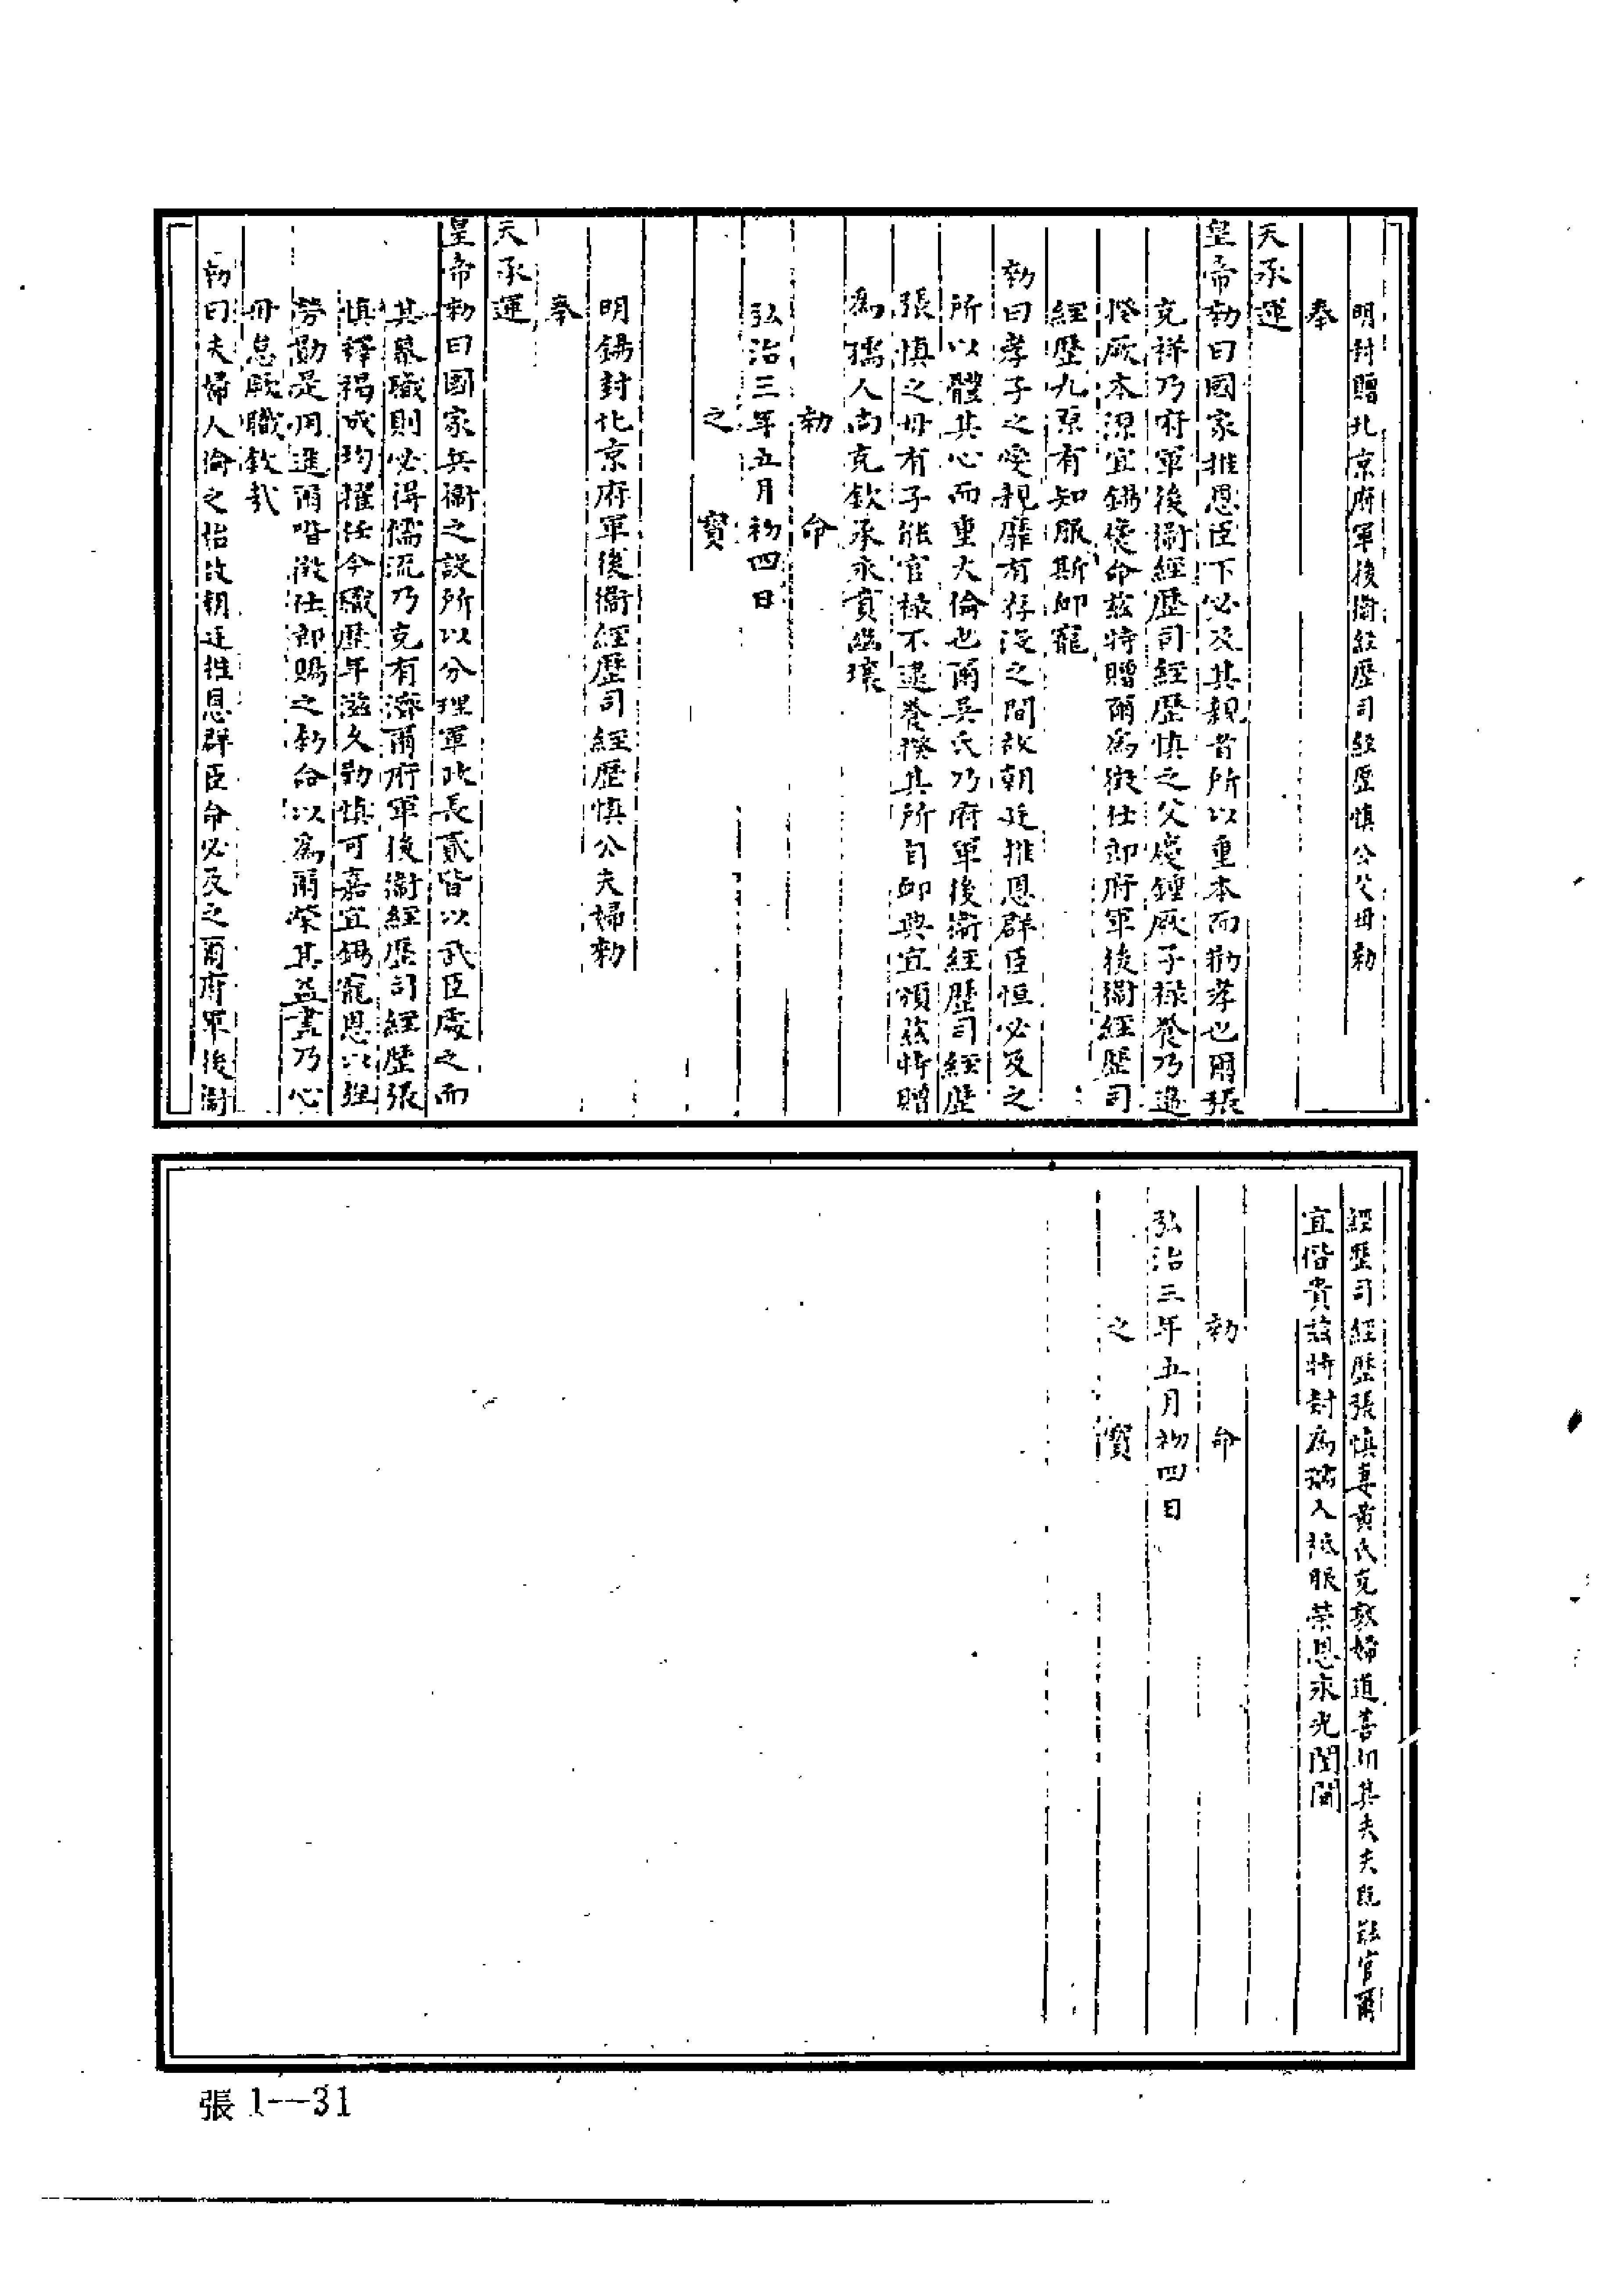 明封贈北京府軍後衞經歷司經歷慎公父母勅
奉
天承運
皇帝勅曰國家推恩臣下必及其親者所以重本而勸孝也爾張
克祥乃府軍後衞經歷司經歷慎之父慶鍾厥子祿養乃違
揆厥本源宜錫褒命茲特贈爾爲徵仕郎府軍後衞經歷司
經歷九原有知服斯卹寵
勅曰孝子之愛親靡有存沒之間故朝廷推恩群臣恒必及之
所以體其心而重大倫也爾吳氏乃府軍後衞經歷司經歷
張慎之母有子能官祿不逮養揆其所自卹典宜頒茲特贈
爲孺人尚克欽承永賁幽壤
勅命
弘治三年五月初四日
之寶
明錫封北京府軍後衞經歷司經歷慎公夫婦勅
奉
天承運
皇帝勅曰國家兵衞之設所以分理軍政長貳皆以武臣處之而
其幕職則必得儒流乃克有濟爾府軍後衞經歷司經歷張
慎釋褐成均擢任今職歷年滋久勤慎可嘉宜錫寵恩以
勞勛是用進爾階徵仕郎賜之勅命以爲爾榮其益盡乃心
毋怠厥職欽哉
勅曰夫婦人倫之始故朝廷推恩群臣命必及之爾府軍後衞
經歷司經歷張慎妻黃氏克敦婦道善相其夫夫既能官爾
宜偕貴茲特封爲孺人祗服榮恩永光閨閫
勅命
弘治三年五月初四日
之寶
張1—31